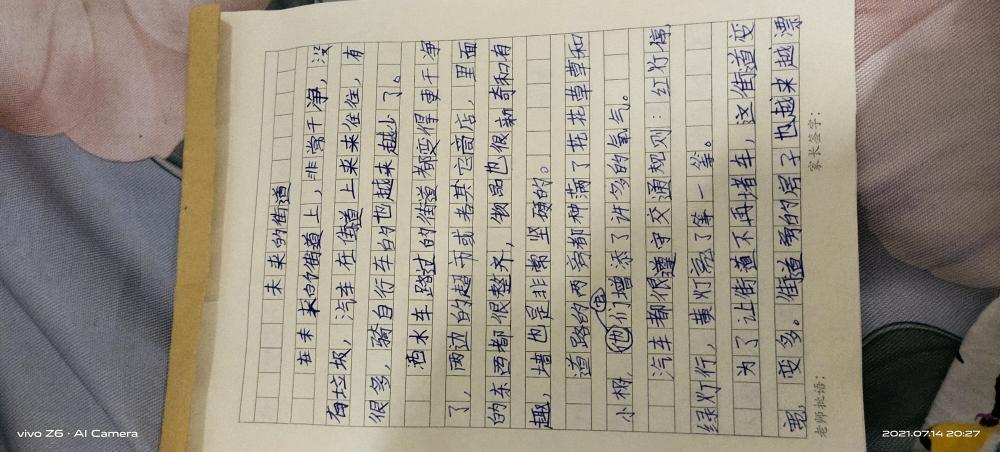 未来的街道
在未来的街道上，非常干净，没
有垃圾，汽车在街道上来来往往，有
很多，骑自行车的也越来越少了。
洒水车路过的街道都变得更干净
了，两边的超市或者其它商店，里面
的东西都很整齐，物品也很新奇和有
趣，墙也是非常坚硬的。
道路的两旁都种满了花花草草和
小树，它们增添了许多的氧气。
汽车都很遵守交通规则：红灯停，
绿灯行，黄灯亮了等一等。
为了让街道不再堵车，这街道变
宽，变多。街道旁的房子也越来越漂
老师批语：
家长签字：
vivo Z6 · AI Camera
2021.07.14 20:27